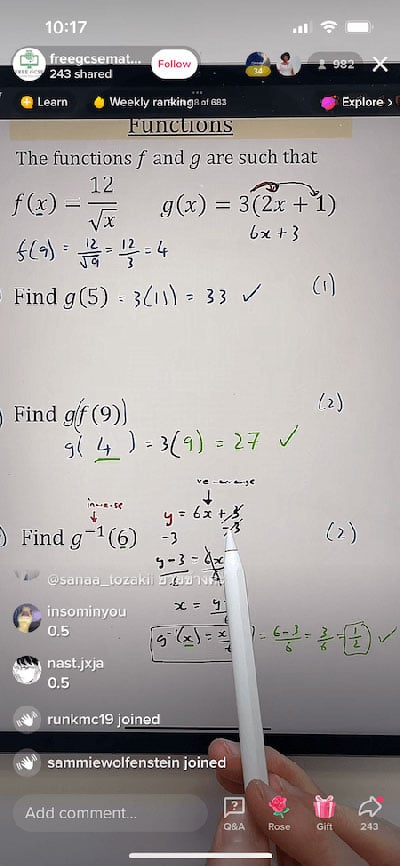 10:17
freegcsemat...
243 shared
Follow
34
982
Learn
Weekly ranking
8 of 683
Explore >
Functions
The functions f and g are such that
f(x) = 12/√x g(x) = 3(2x + 1)
6x + 3
f(9) = 12/√9 = 12/3 = 4
Find g(5) = 3(11) = 33 ✓ (1)
Find gf(9) (2)
g(4) = 3(9) = 27 ✓
inverse
re-arrange
y = 6x + 3
-3 -3
) Find g⁻¹(6) (2)
y-3 = 6x
x = y
g⁻¹(x) = x = 6-3/6 = 3/6 = 1/2 ✓
@sanaa_tozaki
insominyou
0.5
nast.jxja
0.5
runkmc19 joined
sammiewolfenstein joined
Add comment...
Q&A
Rose
Gift
243